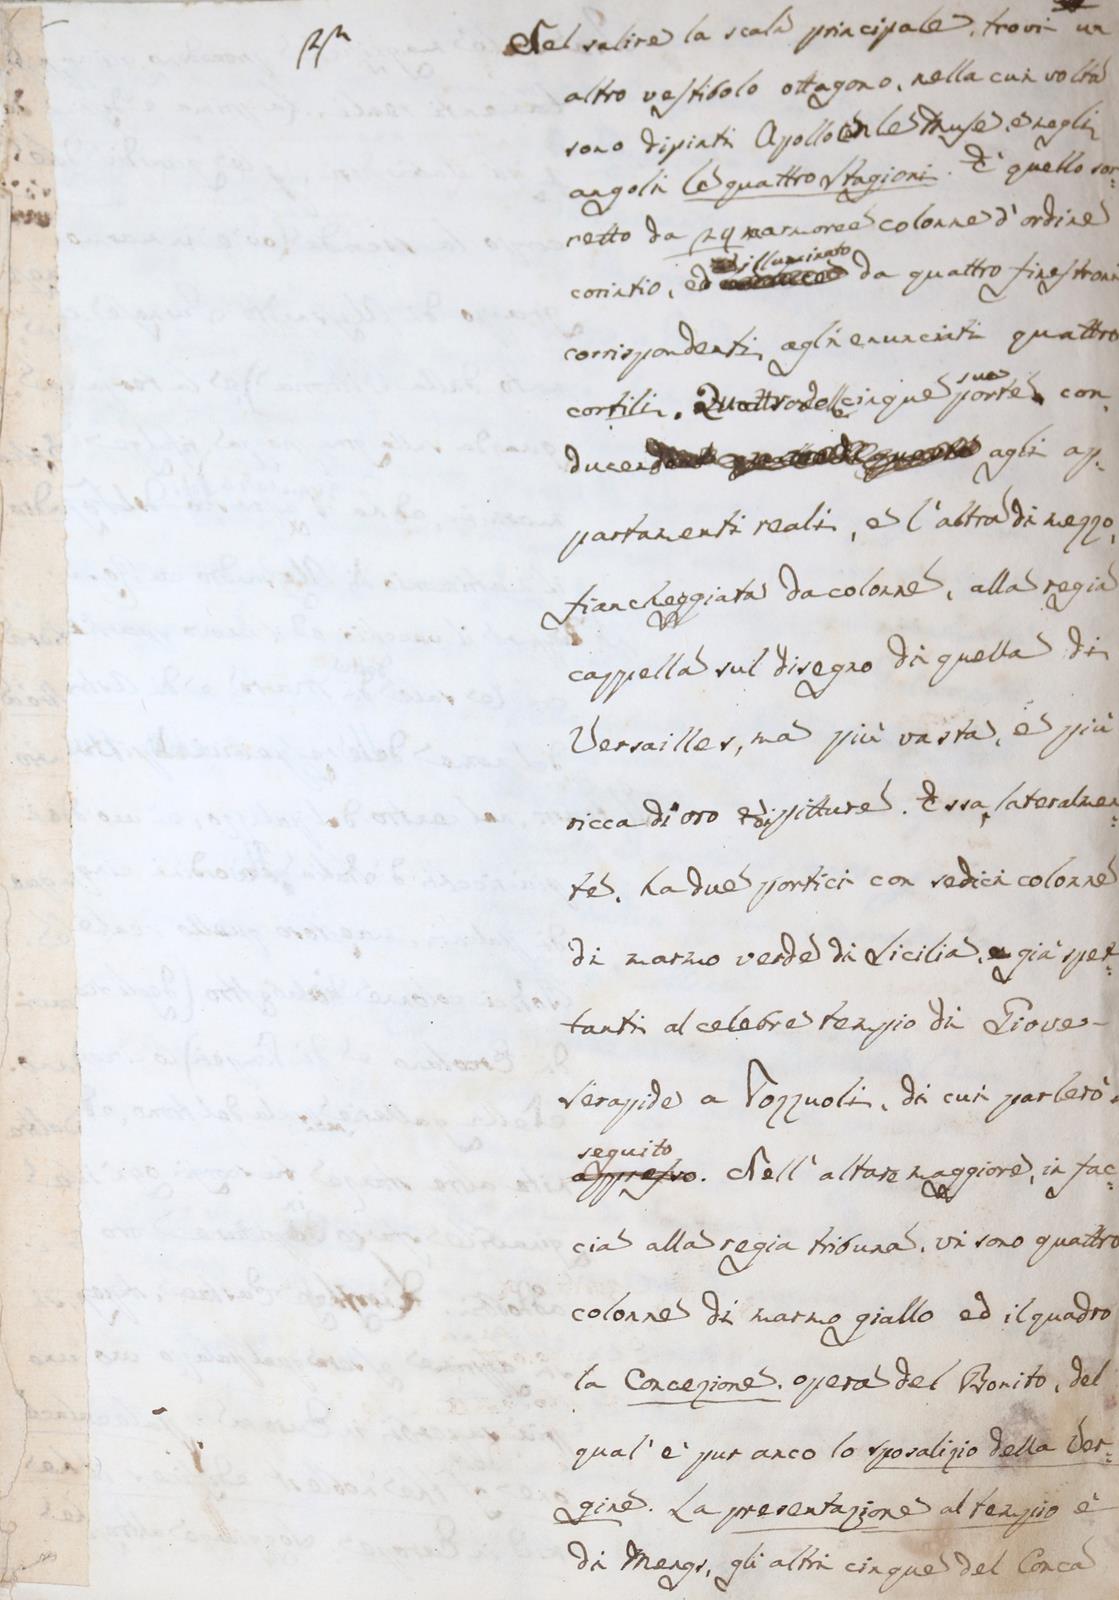 Nel salire la scala principale, trovi un
altro vestibolo ottagono, nella cui volta
sono dipinti Apollo con le Muse, e negli
angoli le quattro Stagioni. È quello sor-
retto da 24 marmoree colonne d'ordine
illuminato
corintio, ed da quattro finestroni
corrispondenti agli enunciati quattro
sue
cortili. Quattro delle cinque porte con-
ducen agli ap-
partamenti reali, e l'altra di mezzo,
fiancheggiata da colonne, alla regia
cappella sul disegno di quella di
Versailles, ma più vasta, e più
ricca di oro e di pitture. Essa, lateralmen-
te, ha due portici con sedici colonne
di marmo verde di Sicilia, già spet-
tanti al celebre tempio di Giove-
Serapide a Pozzuoli, di cui parlerò
seguito
appresso. Nell'altare maggiore, in fac-
cia alla regia tribuna, vi sono quattro
colonne di marmo giallo ed il quadro
la Concezione, opera del Bonito, del
qual'è pur anco lo sposalizio della Ver-
gine. La presentazione al tempio è
di Mengs, gli altri cinque del Conca